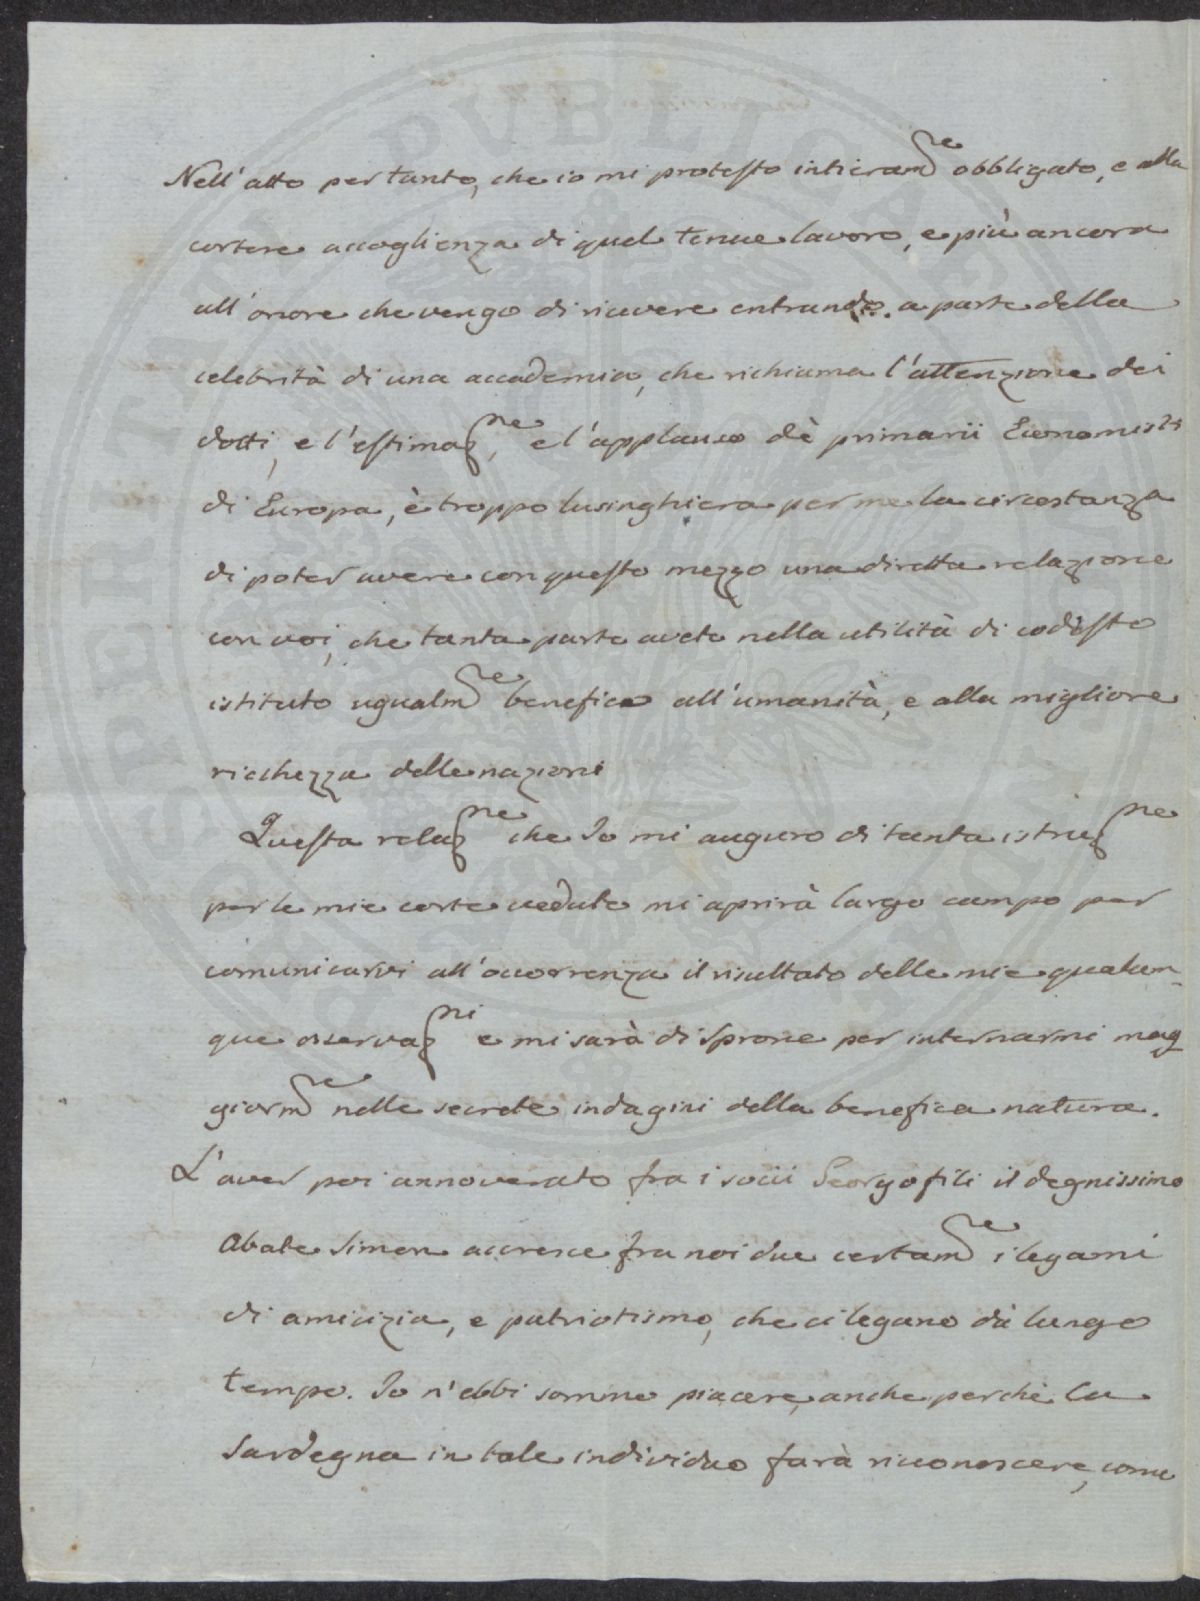 Nell'atto per tanto, che io mi protesto intieram.e obbligato, e alla
cortese accoglienza di quel tenue lavoro, e più ancora
all'onore che vengo di ricevere entrando a parte della
celebrità di una accademia, che richiama l'attenzione dei
dotti, e l'estimaz.ne, e l'applauso dè primarii Economisti
di Europa, è troppo lusinghiera per me la circostanza
di poter avere con questo mezzo una diretta relazione
con voi, che tanta parte avete nella utilità di codesto
istituto ugualm.e benefico all'umanità, e alla migliore
ricchezza delle nazioni
Questa relaz.ne che Io mi auguro di tanta istruz.ne
per le mie corte vedute mi aprirà largo campo per
comunicarvi all'occorrenza il risultato delle mie qualun-
que osservaz.ni e mi sarà di sprone per internarmi mag
giorm.e nelle secrete indagini della benefica natura.
L'aver poi annoverato fra i socii Georgofili il degnissimo
Abate Simon accresce fra noi due certam.e i legami
di amicizia, e patriotismo, che ci legano dà lungo
tempo. Io n'ebbi sommo piacere, anche perchè la
Sardegna in tale individuo farà riconoscere, come